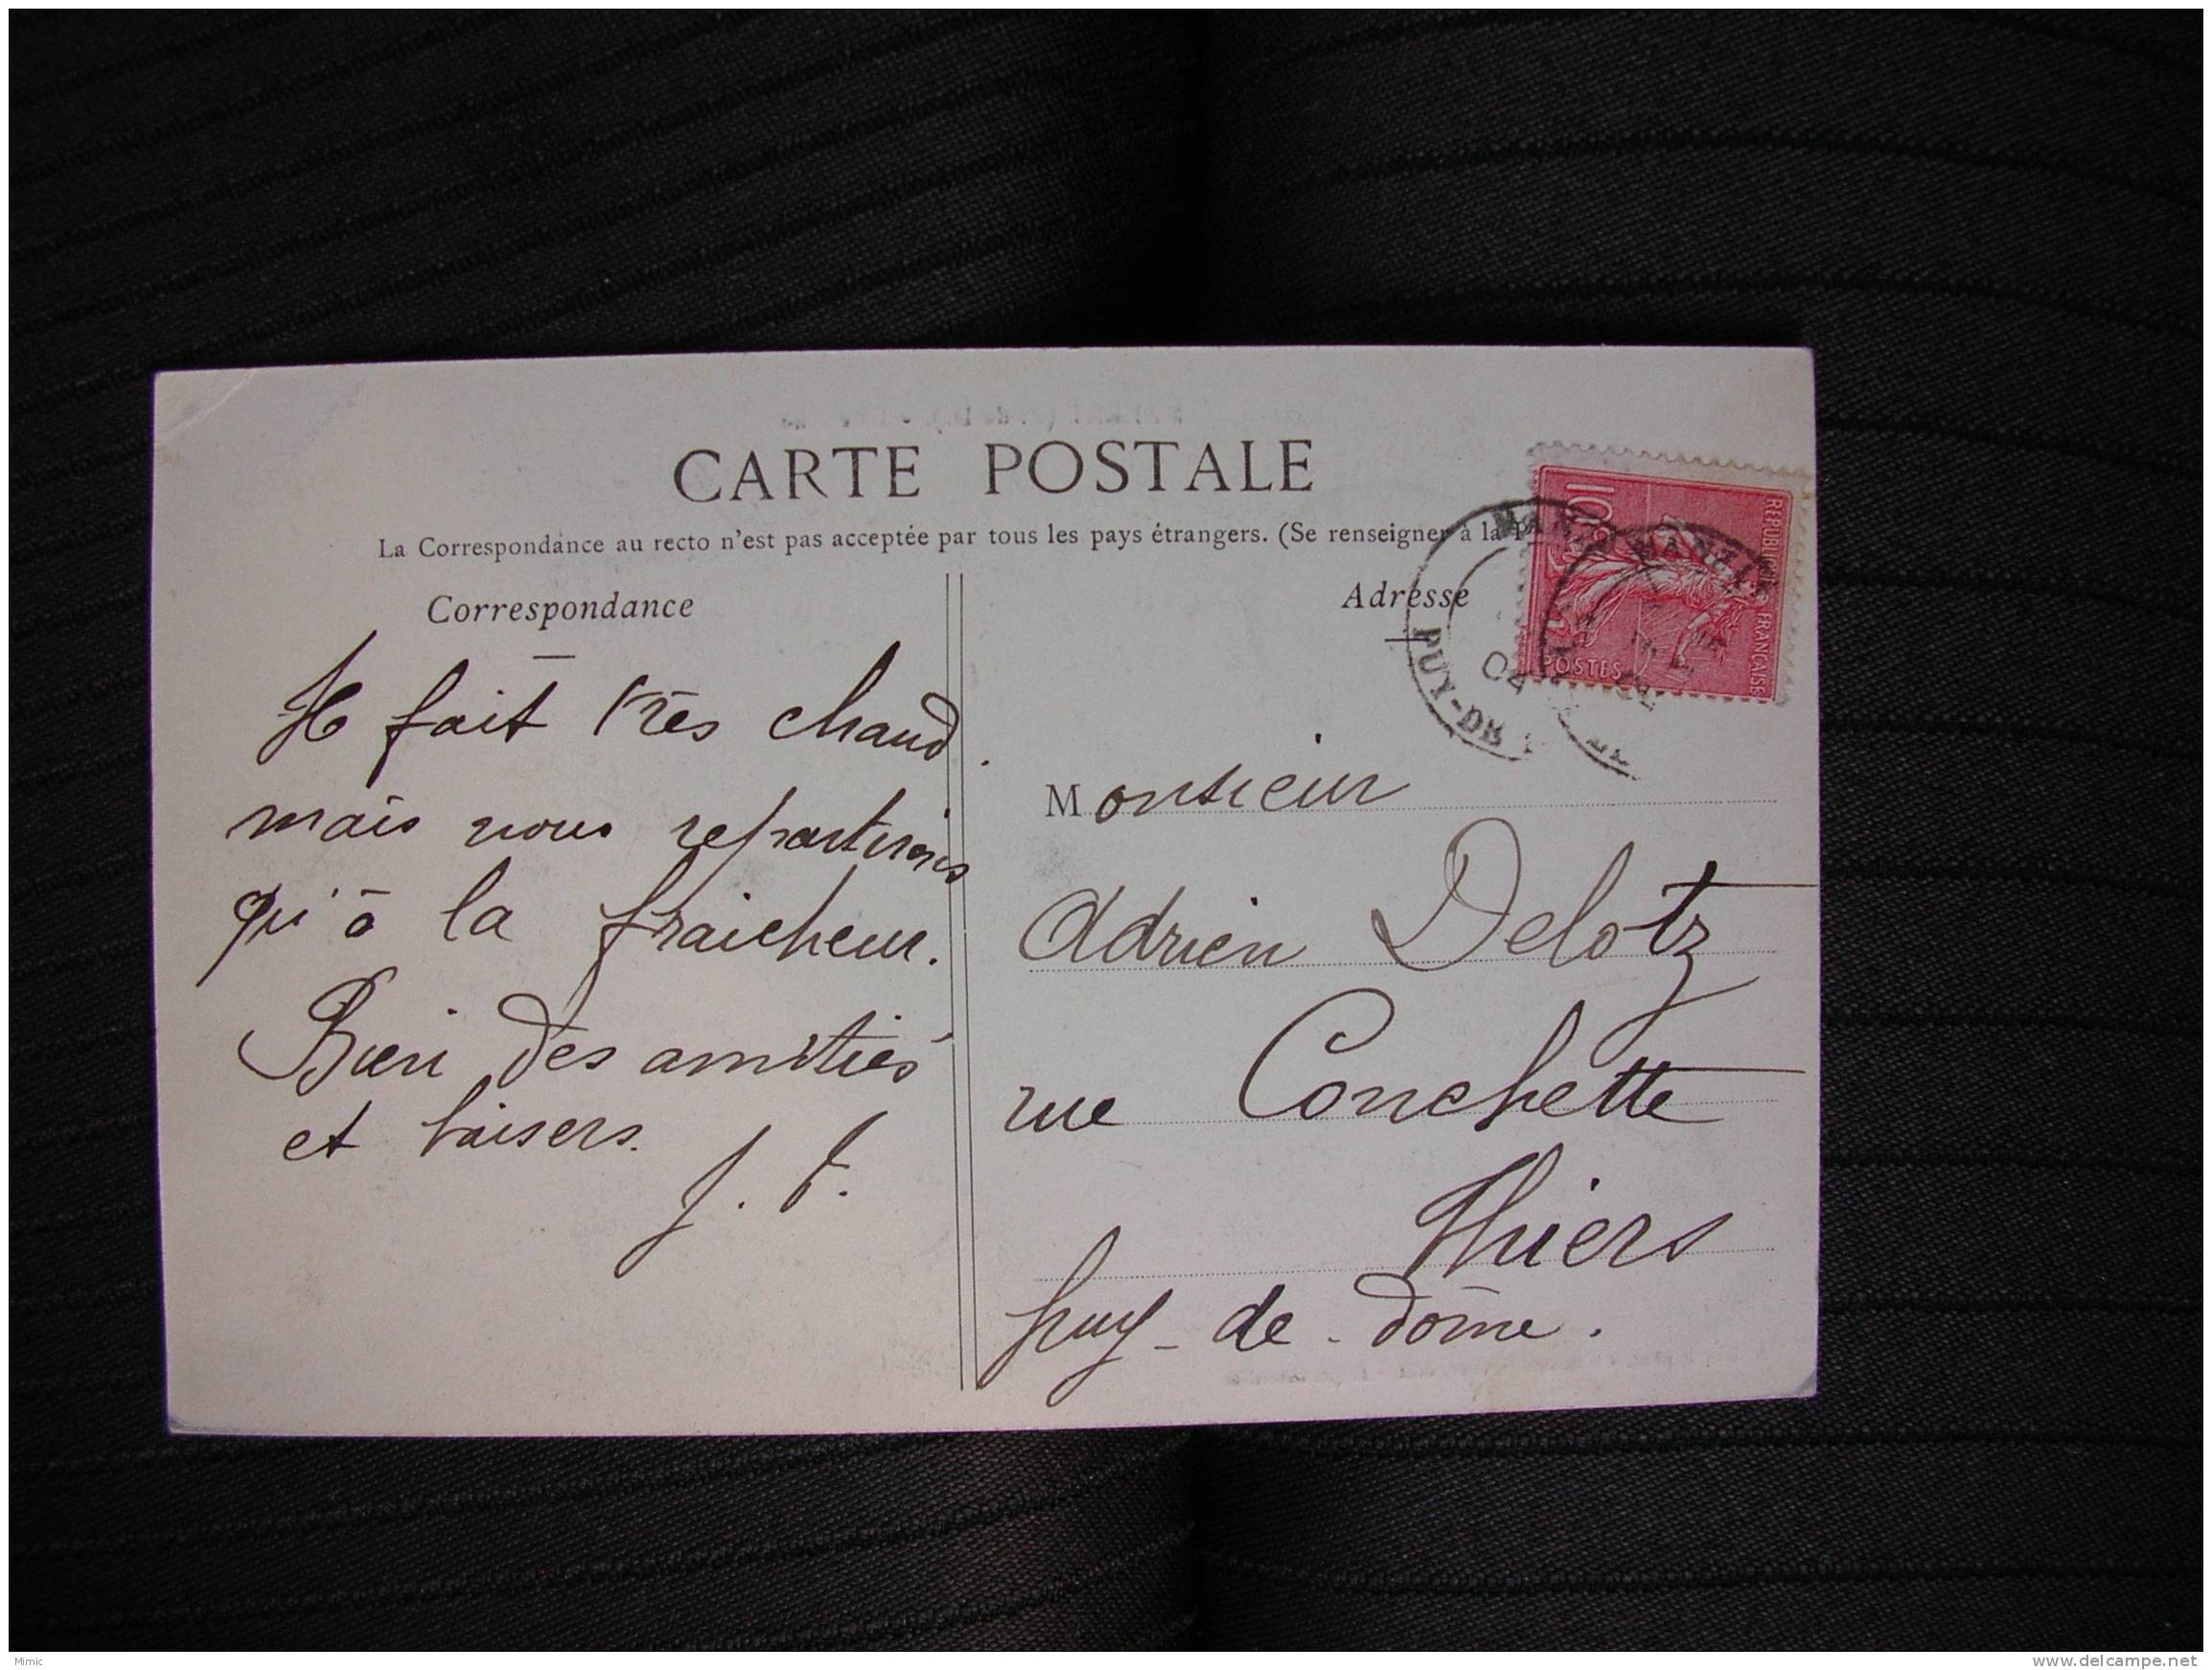 CARTE POSTALE
La Correspondance au recto n'est pas acceptée par tous les pays étrangers. (Se renseigner à la P
Correspondance
Il fait très chaud.
mais nous repartirons
qu'à la fraicheur.
Bien des amitiés
et baisers.
J. F.
Adresse
10c
REPUBLIQUE FRANÇAISE
POSTES
MANZAT
PUY-DE
04
Monsieur
Adrien Delotz
rue Conchette
Thiers
Puy-de-dôme.
Mimic
www.delcampe.net